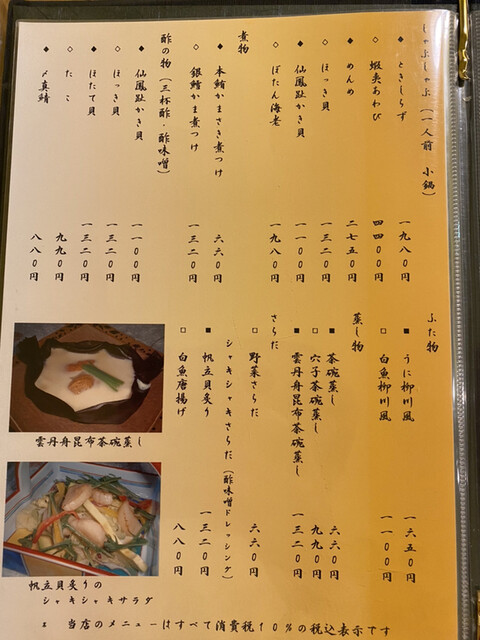 しゃぶしゃぶ(一人前 小鍋)
◆ ときしらず 一九八〇円
◇ 蝦夷あわび 四四〇〇円
◆ めんめ 二七五〇円
◇ ほっき貝 一三二〇円
◆ 仙鳳趾かき貝 一一〇〇円
◇ ぼたん海老 一九八〇円
煮物
◆ 本鱈かまさき煮つけ 六六〇円
◇ 銀鱈かま煮つけ 一三二〇円
酢の物(三杯酢・酢味噌)
◆ 仙鳳趾かき貝 一一〇〇円
◇ ほっき貝 一三二〇円
◆ ほたて貝 一三二〇円
◇ たこ 九九〇円
◆ 〆真鯖 八八〇円
ふた物
■ うに柳川風 一六五〇円
□ 白魚柳川風 一一〇〇円
蒸し物
■ 茶碗蒸し 六六〇円
□ 穴子茶碗蒸し 九九〇円
■ 雲丹舟昆布茶碗蒸し 一三二〇円
さらだ
□ 野菜さらだ 六六〇円
シャキシャキさらだ(酢味噌ドレッシング)
■ 帆立貝炙り 一三二〇円
□ 白魚唐揚げ 八八〇円
雲丹舟昆布茶碗蒸し
帆立貝炙りの
シャキシャキサラダ
※ 当店のメニューはすべて消費税10%の税込表示です